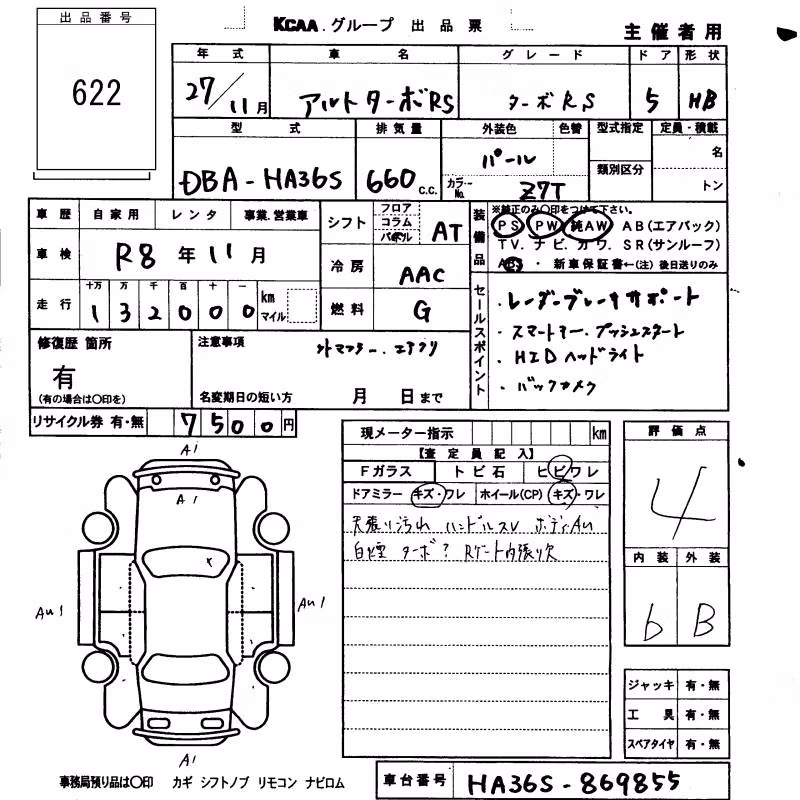 出品番号
622
KCAA.グループ 出品票
主催者用
年式 車名 グレード ドア 形状
27/11月 アルトターボRS ターボRS 5 HB
型式 排気量 外装色 色替 型式指定 定員・積載
DBA-HA36S 660 c.c. パール 名
カラーNo. Z7T 類別区分 トン
車歴 自家用 レンタ 事業.営業車
車検 R8年11月
走行 十万 万 千 百 十 一
132000 km マイル
シフト フロア コラム AT
冷房 AAC
燃料 G
装備品
※純正のみ〇印をつけて下さい。
PS PW 純AW AB(エアバック)
TV. ナビ. カワ. SR(サンルーフ)
ABS ・ 新車保証書←(注)後日送りのみ
セールスポイント
・レーダーブレーキサポート
・スマートキー.プッシュスタート
・HIDヘッドライト
・バックカメラ
修復歴 箇所
有
(有の場合は〇印を)
注意事項
名変期日の短い方 月 日まで
リサイクル券 有・無 7500円
現メーター指示 km
【査定員記入】
Fガラス トビ石 ヒビワレ
ドアミラー キズ・ワレ ホイール(CP) キズ・ワレ
天張り汚れ ハンドルスレ ボディAu
白煙 ターボ? Rゲート内張り欠
評価点
4
内装 外装
6 B
A1
A1
Au1 Au1
A1
ジャッキ 有・無
工具 有・無
スペアタイヤ 有・無
事務局預り品は〇印 カギ シフトノブ リモコン ナビロム
車台番号 HA36S-869855